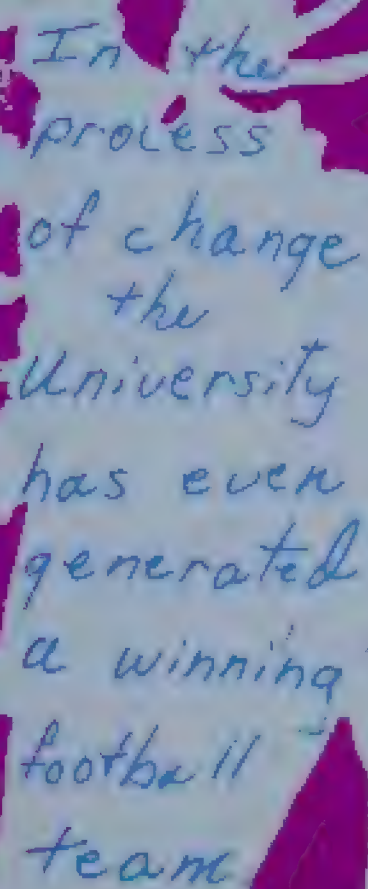 In the
process
of change
the
University
has even
generated
a winning
football
team